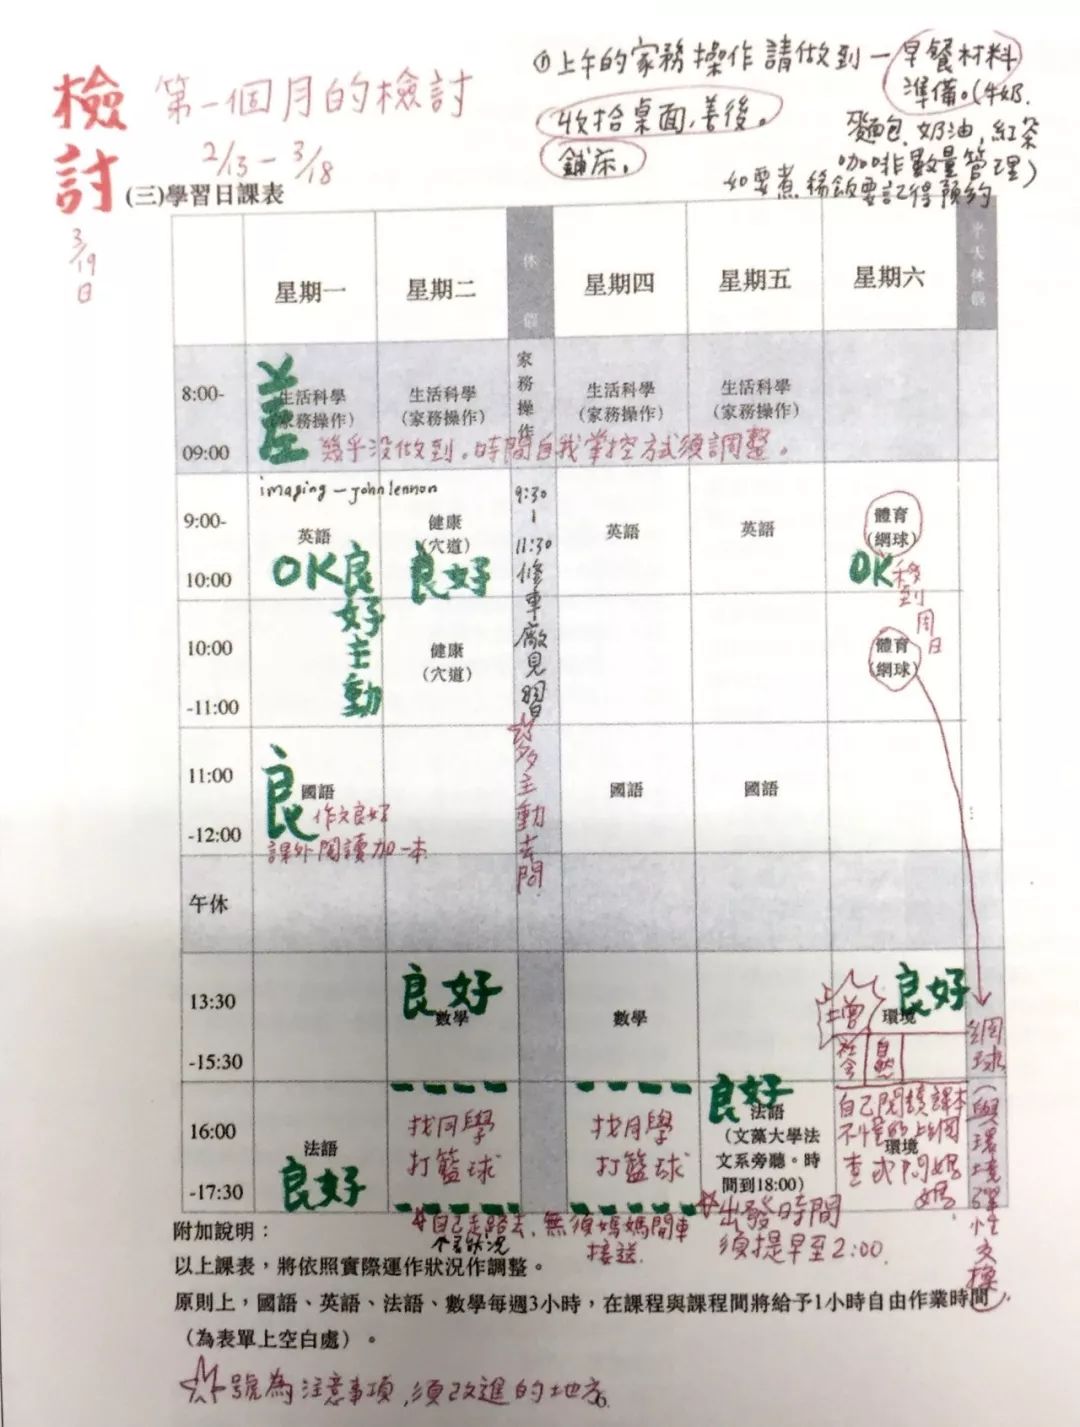 檢討
3/19日
第一個月的檢討
2/13 - 3/18
①上午的家務操作請做到一早餐材料
準備。(牛奶.
收拾桌面,善後。
麵包,奶油,紅茶
鋪床。
咖啡數量管理)
如要煮稀飯要記得預約
(三)學習日課表
星期一
星期二
休假
星期四
星期五
星期六
半天休假
8:00-
09:00
差
生活科學
(家務操作)
生活科學
(家務操作)
家務操作
生活科學
(家務操作)
生活科學
(家務操作)
幾乎沒做到。時間自我掌控方式須調整。
9:00-
10:00
imaging - john lennon
英語
OK良好主動
健康
(穴道)
良好
9:30
|
11:30
修車廠見習
多主動去問
英語
英語
體育
(網球)
OK
移到周日
10:00
-11:00
健康
(穴道)
體育
(網球)
11:00
-12:00
良
國語
作文良好
課外閱讀加一本
國語
國語
午休
13:30
-15:30
良好
數學
數學
增
良好
環境
社會
自然
網球(與環境彈性交換)
16:00
-17:30
法語
良好
找同學
打籃球
找同學
打籃球
良好
法語
(文藻大學法
文系旁聽。時
間到18:00)
自己閱讀課本
不懂的上網
查或問媽
媽
環境
自己走路去,無須媽媽開車
接送
出發時間
須提早至2:00.
附加說明：
以上課表，將依照實際運作狀況作調整。
原則上，國語、英語、法語、數學每週3小時，在課程與課程間將給予1小時自由作業時間
（為表單上空白處）。
號為注意事項,須改進的地方
6